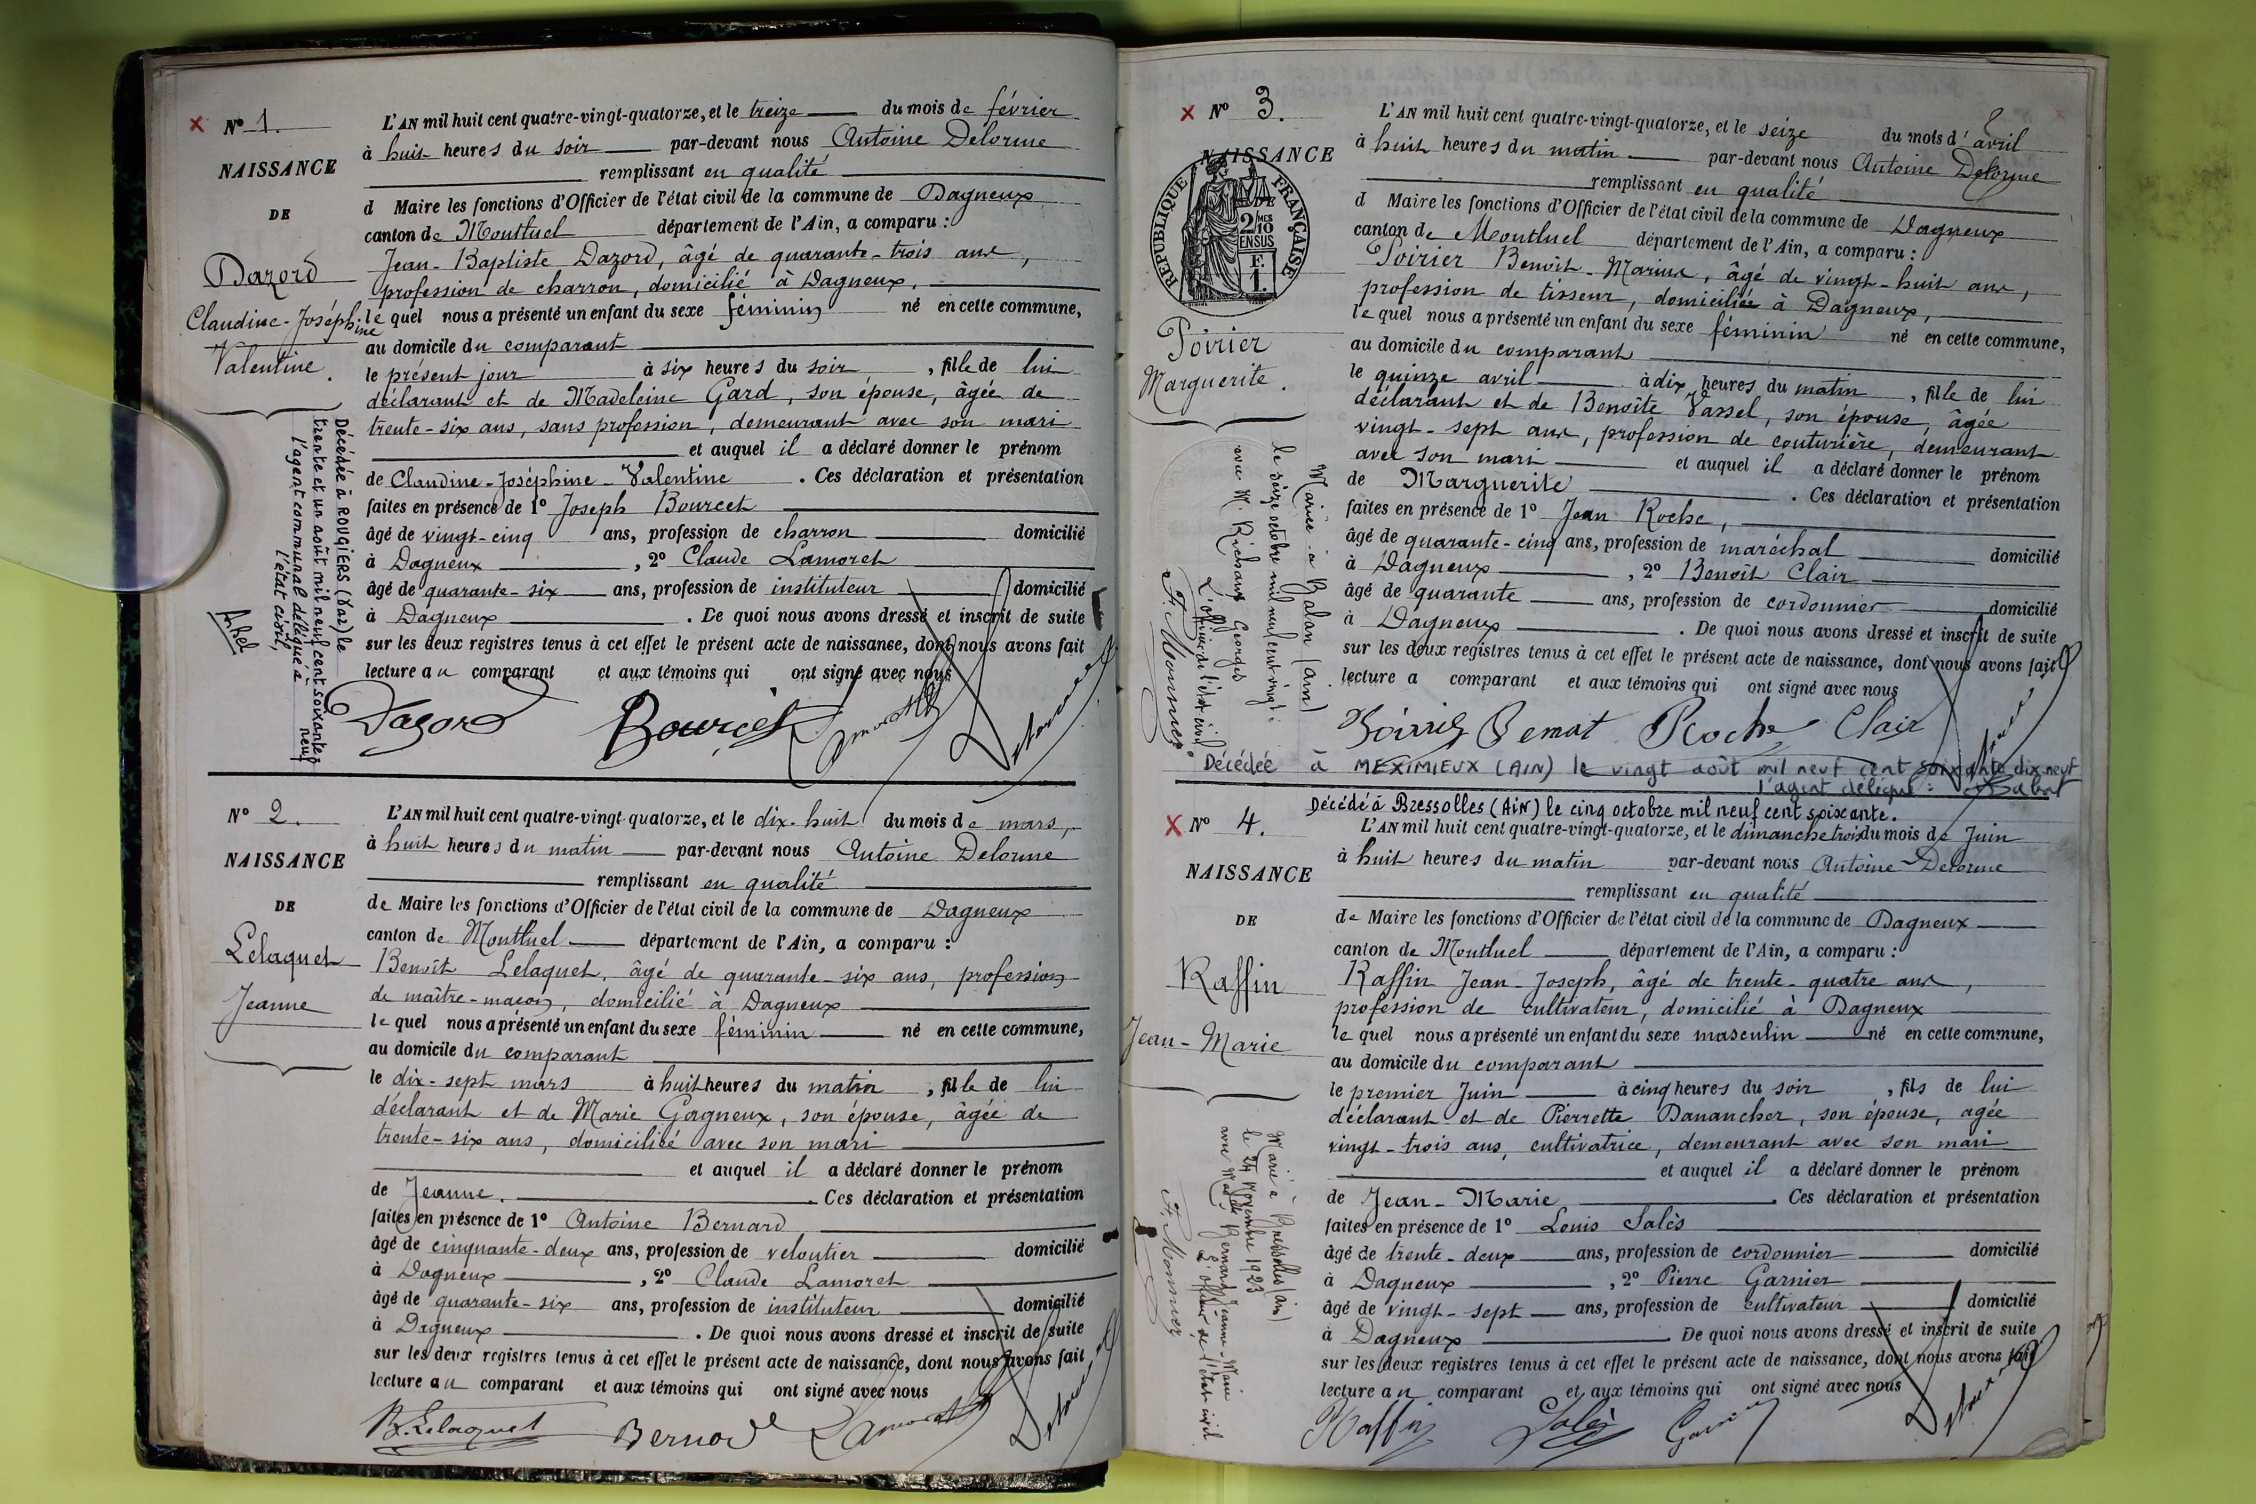 N° 1.
NAISSANCE
DE
Dazord
Claudine-Joséphine
Valentine.
L'AN mil huit cent quatre-vingt-quatorze, et le treize du mois de février
à huit heures du soir par-devant nous Antoine Delorme
remplissant en qualité
d Maire les fonctions d'Officier de l'état civil de la commune de Dagneux
canton de Montluel département de l'Ain, a comparu :
Jean-Baptiste Dazord, âgé de quarante-trois ans,
profession de charron, domicilié à Dagneux,
le quel nous a présenté un enfant du sexe féminin né en cette commune,
au domicile du comparant
le présent jour à six heures du soir, fille de lui
déclarant et de Madeleine Gard, son épouse, âgée de
trente-six ans, sans profession, demeurant avec son mari
et auquel il a déclaré donner le prénom
de Claudine-Joséphine-Valentine. Ces déclaration et présentation
faites en présence de 1° Joseph Bourcet
âgé de vingt-cinq ans, profession de charron domicilié
à Dagneux, 2° Claude Lamoret
âgé de quarante-six ans, profession de instituteur domicilié
à Dagneux. De quoi nous avons dressé et inscrit de suite
sur les deux registres tenus à cet effet le présent acte de naissance, dont nous avons fait
lecture au comparant et aux témoins qui ont signé avec nous
Dazord Bourcet Lamoret Delorme
Décédée à ROUGIERS (Var) le
trente et un août mil neuf cent soixante
neuf
l'agent communal délégué à
l'état civil,
N° 2.
NAISSANCE
DE
Lelaquet
Jeanne
L'AN mil huit cent quatre-vingt-quatorze, et le dix-huit du mois de mars,
à huit heures du matin par-devant nous Antoine Delorme
remplissant en qualité
de Maire les fonctions d'Officier de l'état civil de la commune de Dagneux
canton de Montluel département de l'Ain, a comparu :
Benoît Lelaquet, âgé de quarante-six ans, profession
de maître-maçon, domicilié à Dagneux
le quel nous a présenté un enfant du sexe féminin né en cette commune,
au domicile du comparant
le dix-sept mars à huit heures du matin, fille de lui
déclarant et de Marie Gagneux, son épouse, âgée de
trente-six ans, domiciliée avec son mari
et auquel il a déclaré donner le prénom
de Jeanne. Ces déclaration et présentation
faites en présence de 1° Antoine Bernard
âgé de cinquante-deux ans, profession de veloutier domicilié
à Dagneux, 2° Claude Lamoret
âgé de quarante-six ans, profession de instituteur domicilié
à Dagneux. De quoi nous avons dressé et inscrit de suite
sur les deux registres tenus à cet effet le présent acte de naissance, dont nous avons fait
lecture au comparant et aux témoins qui ont signé avec nous
B. Lelaquet Bernard Lamoret Delorme
N° 3.
NAISSANCE
DE
RÉPUBLIQUE FRANÇAISE
2 MES
10
EN SUS
F.
1.
Poirier
Marguerite.
L'AN mil huit cent quatre-vingt-quatorze, et le seize du mois d'avril
à huit heures du matin par-devant nous Antoine Delorme
remplissant en qualité
d Maire les fonctions d'Officier de l'état civil de la commune de Dagneux
canton de Montluel département de l'Ain, a comparu :
Poirier Benoît-Marius, âgé de vingt-huit ans,
profession de tisseur, domiciliée à Dagneux,
le quel nous a présenté un enfant du sexe féminin né en cette commune,
au domicile du comparant
le quinze avril à dix heures du matin, fille de lui
déclarant et de Benoîte Vassel, son épouse, âgée
vingt-sept ans, profession de couturière, demeurant
avec son mari et auquel il a déclaré donner le prénom
de Marguerite. Ces déclaration et présentation
faites en présence de 1° Jean Roche,
âgé de quarante-cinq ans, profession de maréchal domicilié
à Dagneux, 2° Benoît Clair
âgé de quarante ans, profession de cordonnier domicilié
à Dagneux. De quoi nous avons dressé et inscrit de suite
sur les deux registres tenus à cet effet le présent acte de naissance, dont nous avons fait
lecture a comparant et aux témoins qui ont signé avec nous
Poirier Roche Clair Delorme
Mariée à Balan (Ain)
le seize octobre mil neuf cent vingt
avec M. Richard Georges
L'officier de l'état civil
F. Monnier
Décédée à MEXIMIEUX (AIN) le vingt août mil neuf cent soixante dix neuf
l'agent délégué :
N° 4.
NAISSANCE
DE
Raffin
Jean-Marie
Décédé à Bressolles (AiN) le cinq octobre mil neuf cent soixante.
L'AN mil huit cent quatre-vingt-quatorze, et le dimanche trois du mois de Juin
à huit heures du matin par-devant nous Antoine Delorme
remplissant en qualité
de Maire les fonctions d'Officier de l'état civil de la commune de Dagneux
canton de Montluel département de l'Ain, a comparu :
Raffin Jean-Joseph, âgé de trente-quatre ans,
profession de cultivateur, domicilié à Dagneux
le quel nous a présenté un enfant du sexe masculin né en cette commune,
au domicile du comparant
le premier Juin à cinq heures du soir, fils de lui
déclarant et de Pierrette Danancher, son épouse, agée
vingt-trois ans, cultivatrice, demeurant avec son mari
et auquel il a déclaré donner le prénom
de Jean-Marie. Ces déclaration et présentation
faites en présence de 1° Louis Salès
âgé de trente-deux ans, profession de cordonnier domicilié
à Dagneux, 2° Pierre Garnier
âgé de vingt-sept ans, profession de cultivateur domicilié
à Dagneux. De quoi nous avons dressé et inscrit de suite
sur les deux registres tenus à cet effet le présent acte de naissance, dont nous avons fait
lecture au comparant et aux témoins qui ont signé avec nous
Raffin Salès Garnier Delorme
Marié à Bressolles (Ain)
le 24 Novembre 1923
avec Melle Bernard Jeanne-Marie
L'officier de l'état civil
F. Monnier